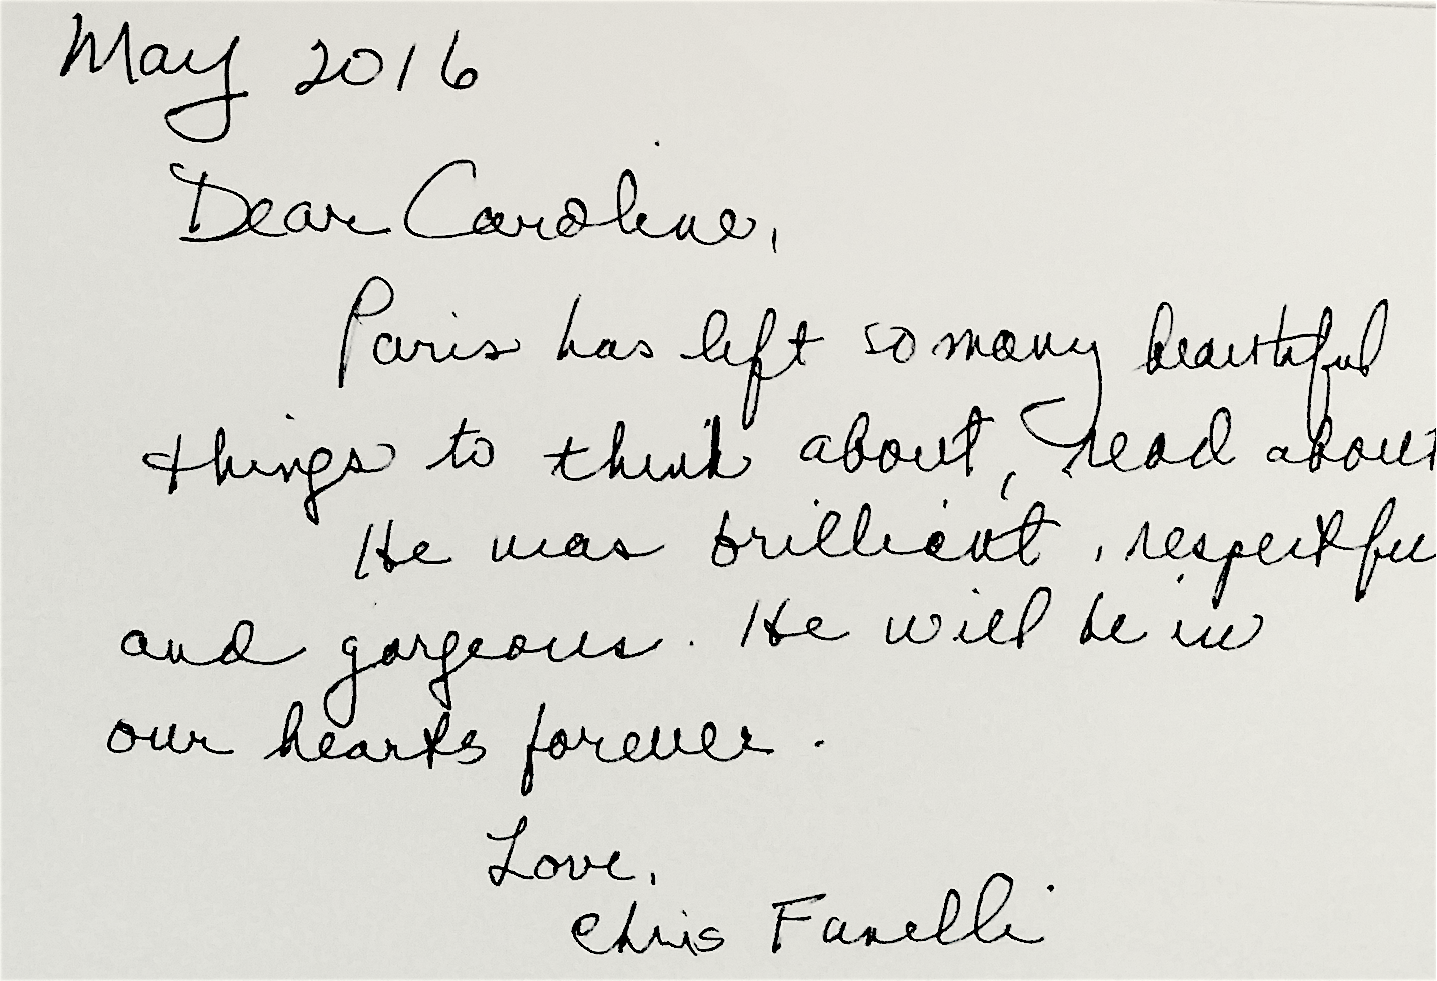 May 2016
Dear Caroline,
Paris has left so many beautiful
things to think about, read about
He was brillient, respectful
and gorgeous. He will be in
our hearts forever.
Love,
Chris Fanelli